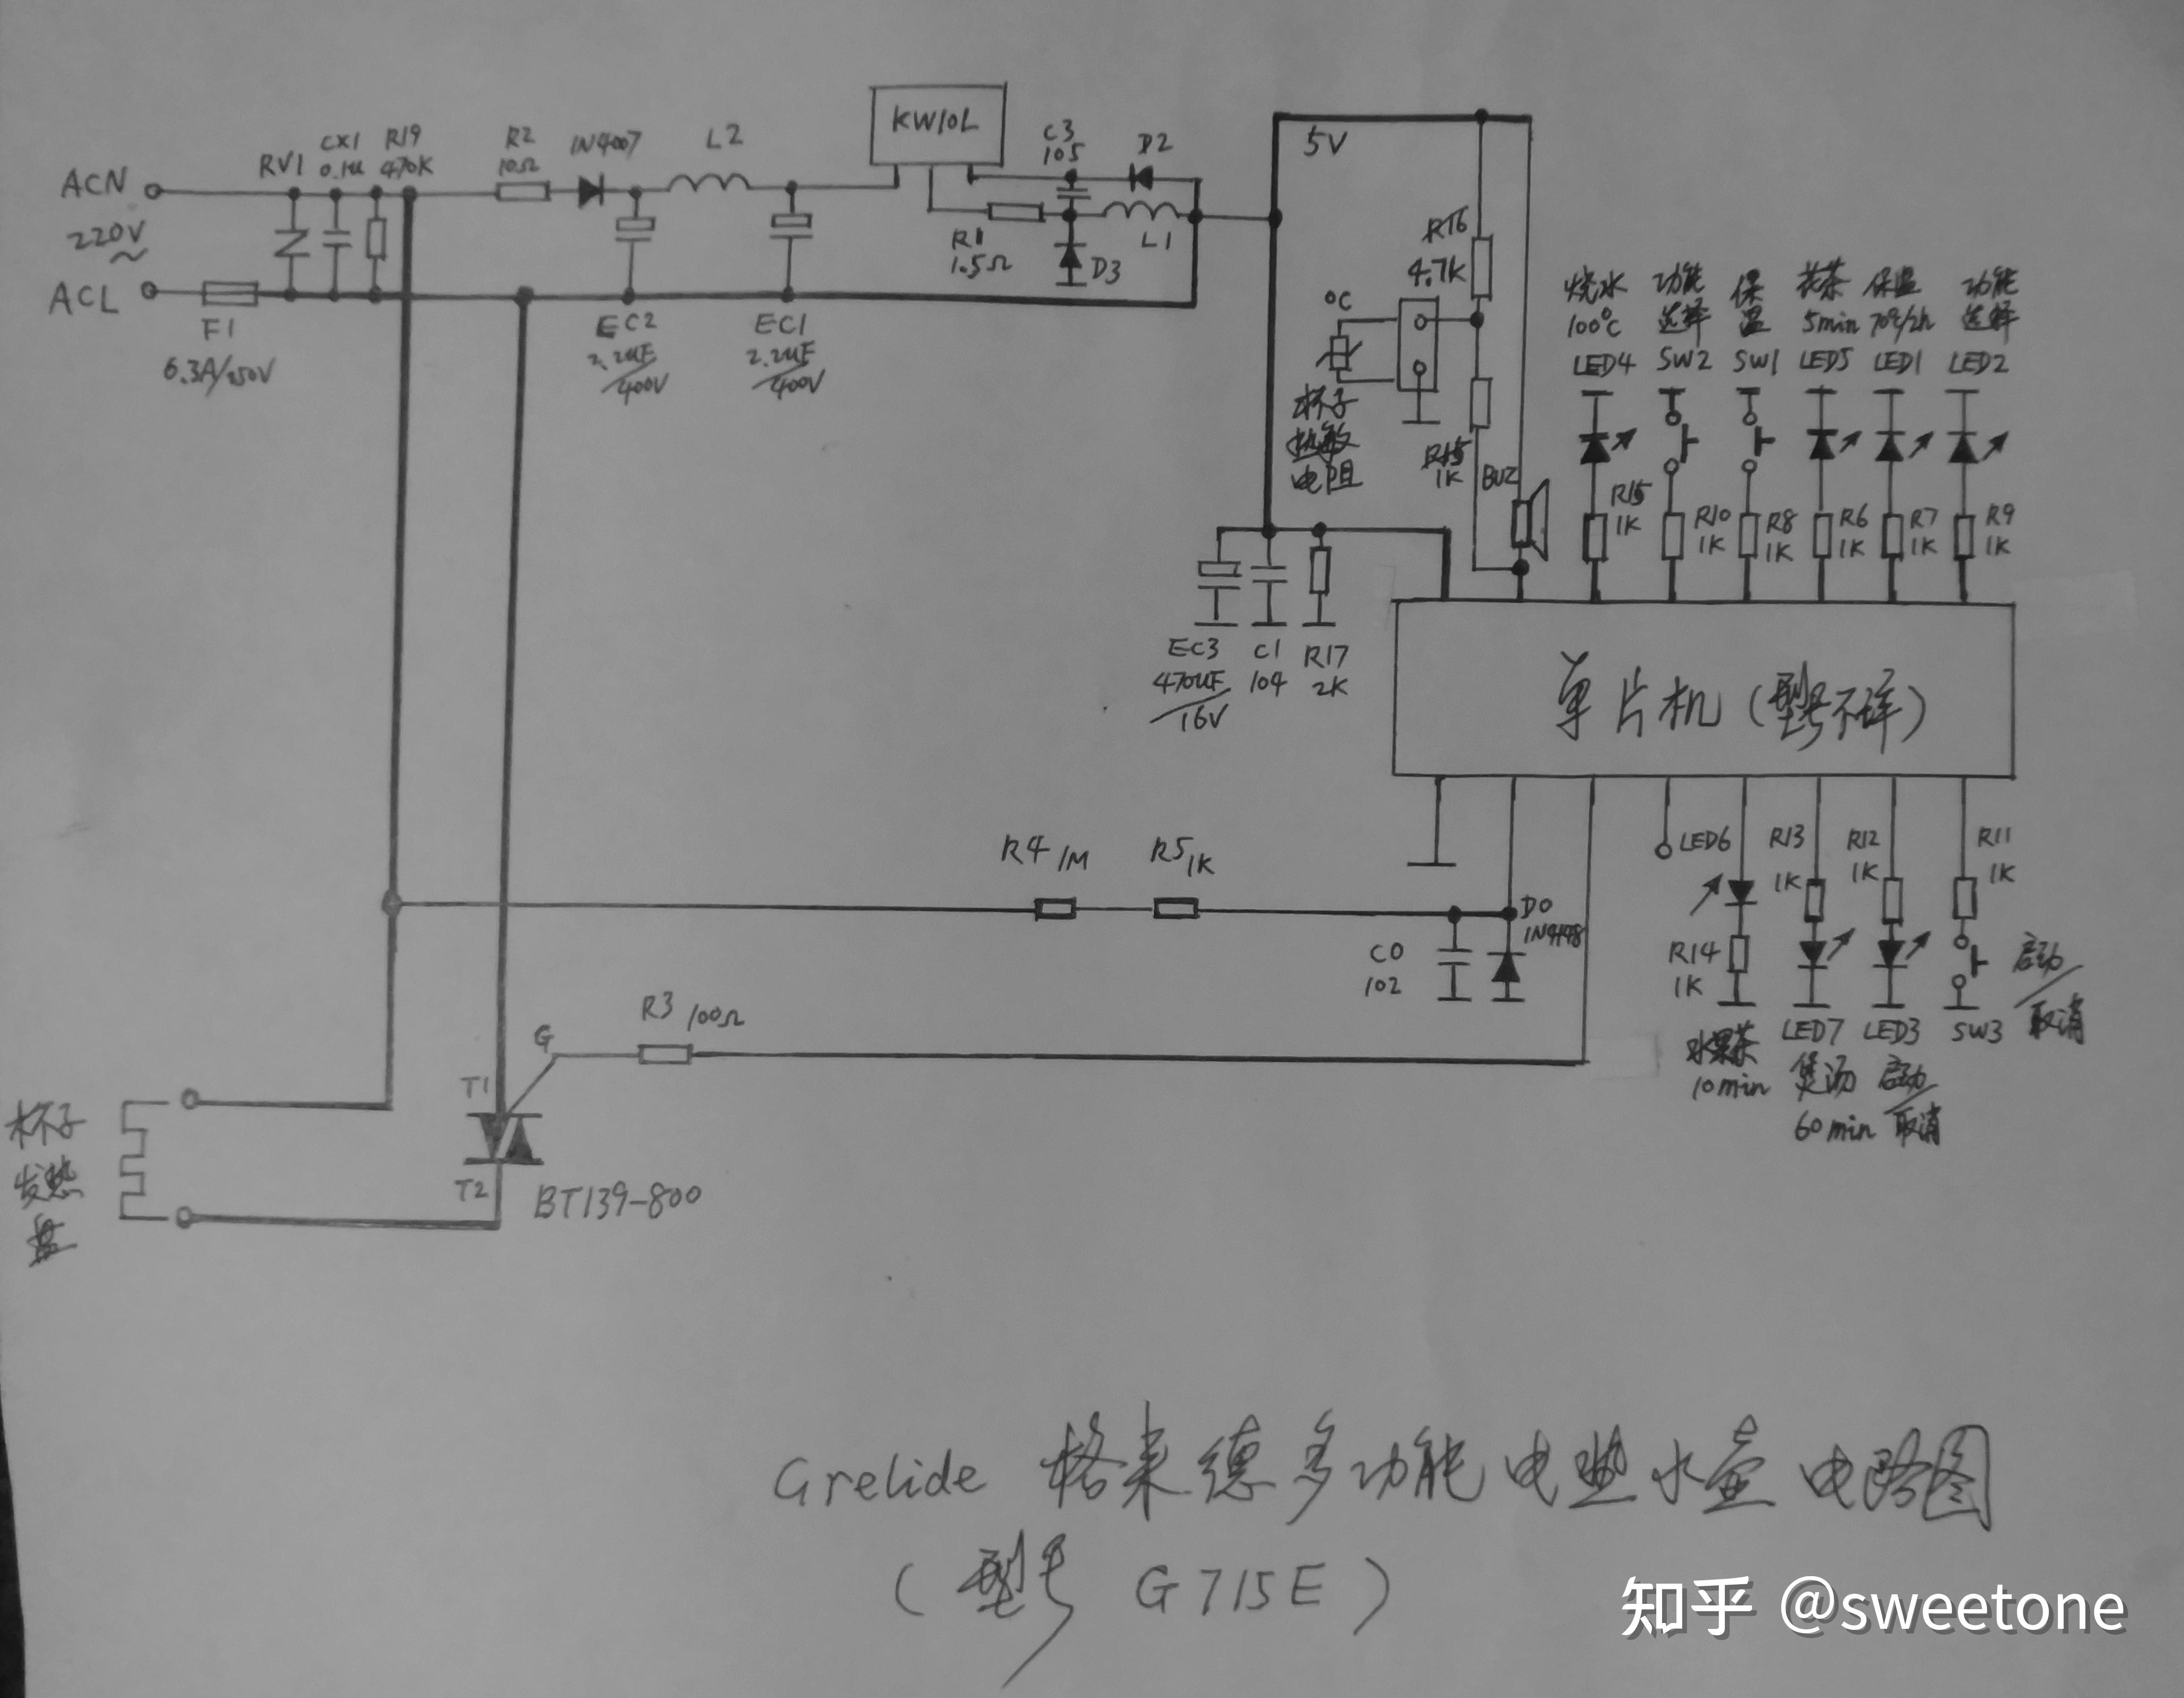 ACN
220V
~
ACL
F1
6.3A/250V
RV1
CX1
0.1u
R19
470K
R2
10Ω
IN4007
L2
EC2
2.2uF
400V
EC1
2.2uF
400V
KW10L
R1
1.5Ω
C3
105
D2
L1
D3
5V
R16
4.7K
°C
杯子
热敏
电阻
R15
1K
BUZ
烧水
100°C
LED4
功能
选择
SW2
保
温
SW1
花茶
5min
LED5
保温
70°/2h
LED1
功能
选择
LED2
R15
1K
R10
1K
R8
1K
R6
1K
R7
1K
R9
1K
EC3
470UF
16V
C1
104
R17
2K
单片机(型号不详)
R4 1M
R5 1K
C0
102
D0
1N4148
LED6
R14
1K
水果茶
10min
R13
1K
LED7
煲汤
60min
R12
1K
LED3
启动
取消
R11
1K
SW3
启动
取消
R3 100Ω
G
T1
T2
BT139-800
杯子
发热
盘
Grelide 格来德多功能电热水壶电路图
(型号 G715E)
知乎 @sweetone